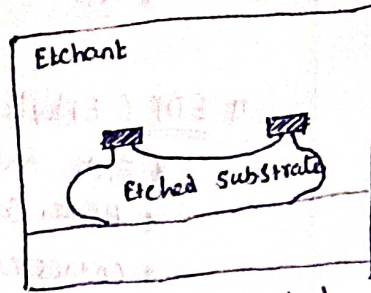 Etchant
Etched Substrate